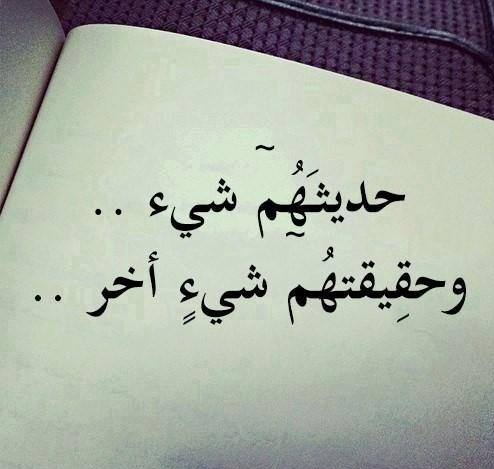 حديثـَهُِم̃ شيء ..
وحقِيقتهُم̃ شيءٍ أخر ..